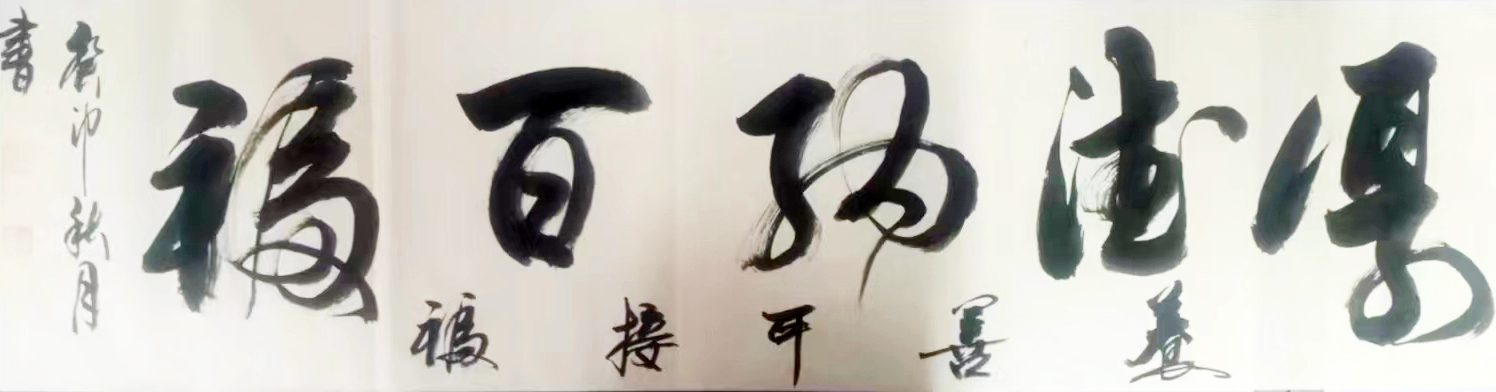 厚德納百福
養善可接福
癸卯秋月
書